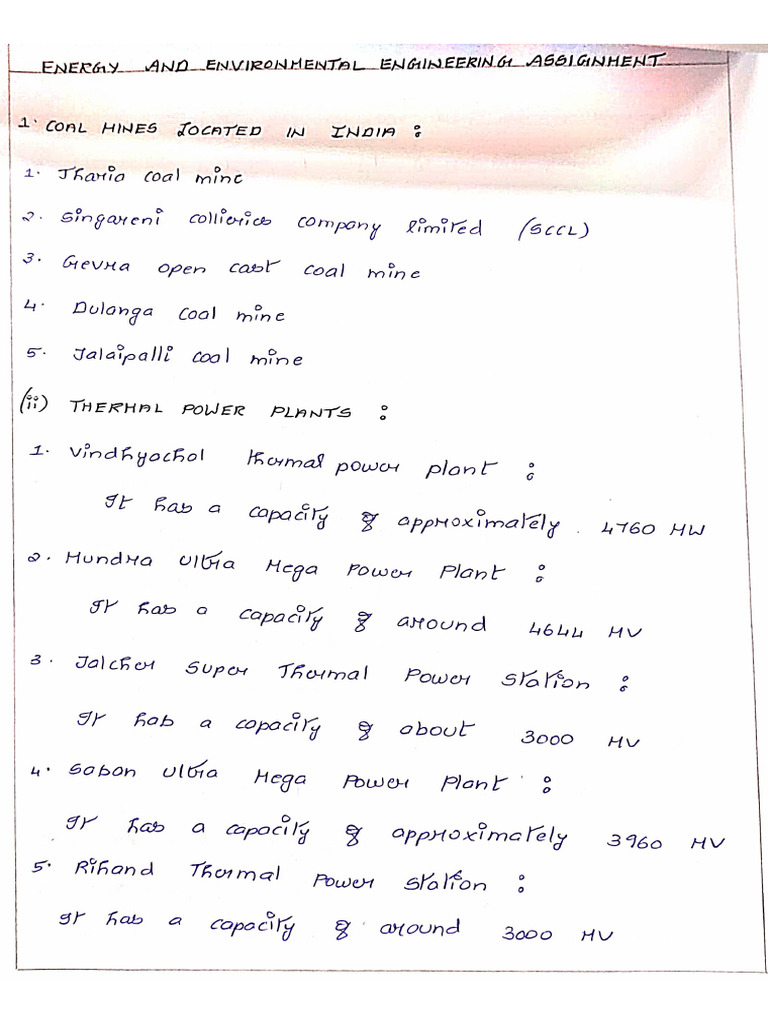 ENERGY AND ENVIRONMENTAL ENGINEERING ASSIGNMENT
1. COAL MINES LOCATED IN INDIA :
1. Jharia coal mine
2. Singareni collieries company limited (SCCL)
3. Gevra open cast coal mine
4. Dulanga coal mine
5. Talaipalli coal mine
(ii) THERMAL POWER PLANTS :
1. Vindhyachal thermal power plant :
It has a capacity of approximately 4760 MW
2. Mundra Ultra Mega Power Plant :
It has a capacity of around 4644 MV
3. Talcher Super Thermal Power Station :
It has a capacity of about 3000 MV
4. Sasan Ultra Mega Power Plant :
It has a capacity of approximately 3960 MV
5. Rihand Thermal Power Station :
It has a capacity of around 3000 MV